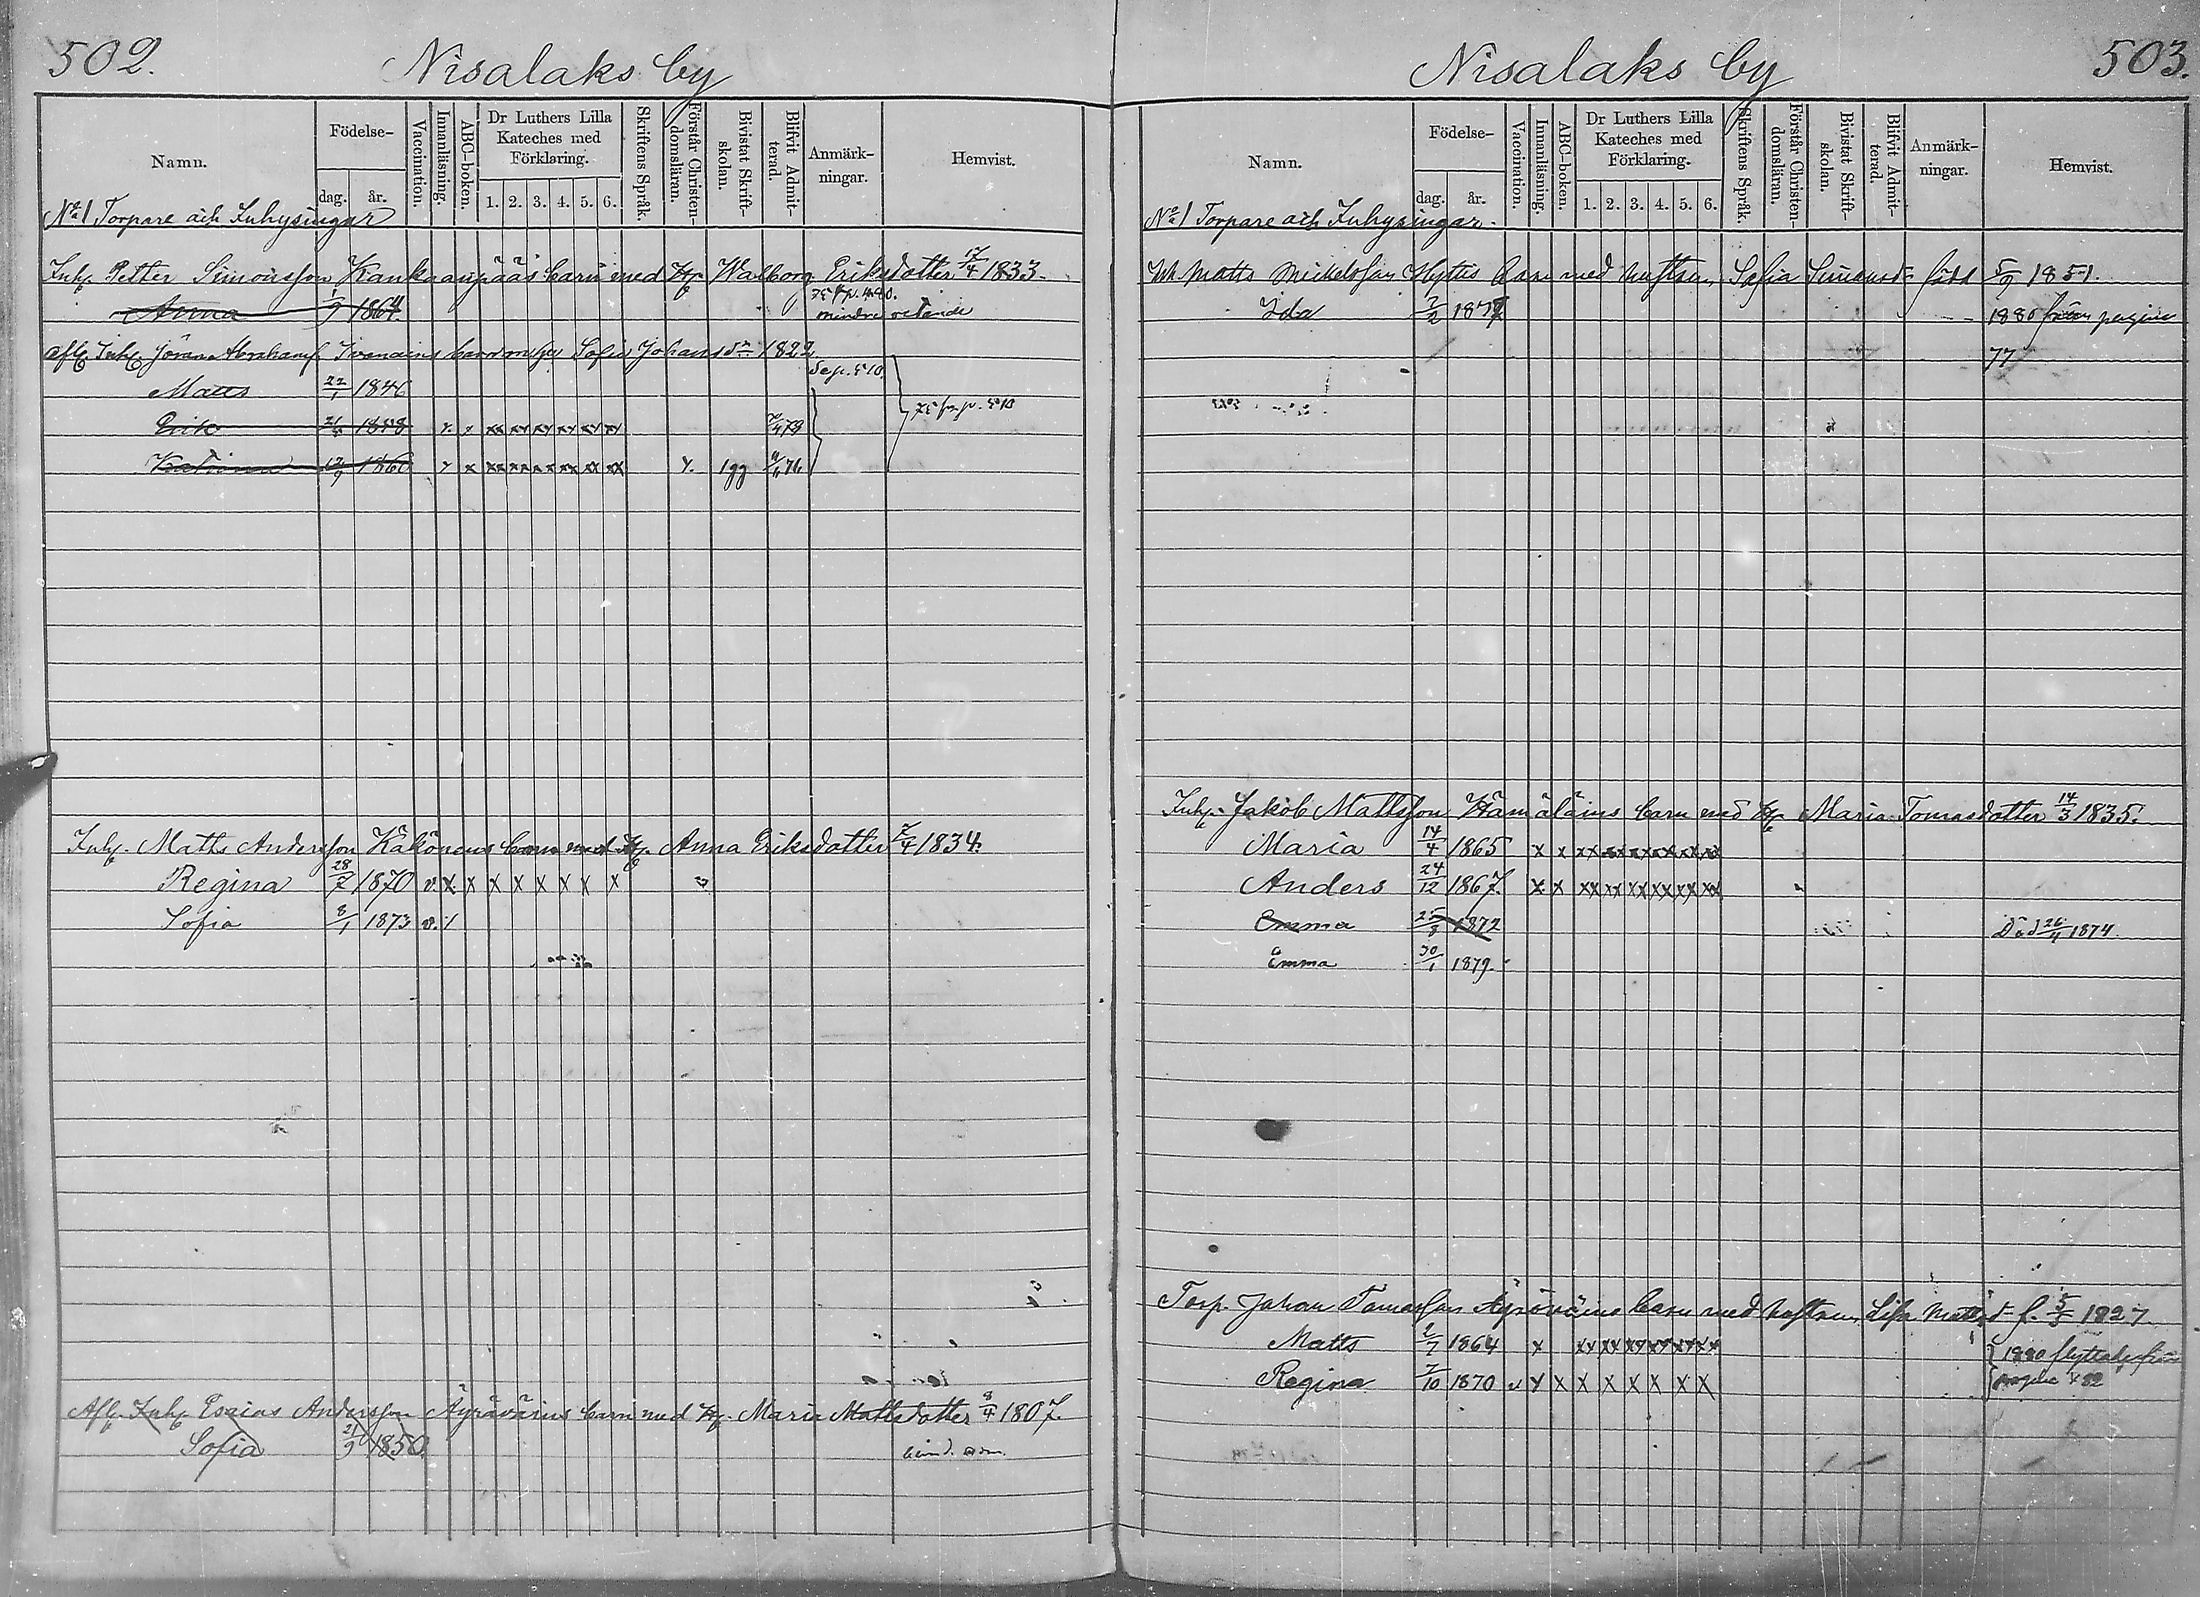 502.
Nisalaks by
Namn.
Födelse-
dag.
år.
Vaccination.
Innanläsning.
ABC-boken.
Dr Luthers Lilla
Kateches med
Förklaring.
1. 2. 3. 4. 5. 6.
Skriftens Språk.
Förstår Christen-
domsläran.
Bivistat Skrift-
skolan.
Blifvit Admit-
terad.
Anmärk-
ningar.
Hemvist.
No 1 Torpare och Inhysingar
Inh. Petter Simonsson Kankaanpääs barn med H. Walborg Eriksdotter 17/4 1833.
Anna 1/9 1864. mindre vetande
Afl. Inh. Jöran Abrahams. barn m. h. Sofia Johansdr 1822
Matts 22/1 1846
Erik 1848 x x xx xx xx xx xx xx
Katarina 12/9 186 x x xx xx xx xx xx xx x. 1gg 76
Inh. Matts Andersson Käkönens barn med H. Anna Eriksdotter 7/4 1834.
Regina 28/7 1870 v. x x x x x x x x
Sofia 8/1 1873 v.
Afl. Inh. Esaias Andersson Äyräväins barn med H. Maria Mattsdotter 8/4 1807.
Sofia 21/9 1850.
503.
Nisalaks by
Namn.
Födelse-
dag.
år.
Vaccination.
Innanläsning.
ABC-boken.
Dr Luthers Lilla
Kateches med
Förklaring.
1. 2. 3. 4. 5. 6.
Skriftens Språk.
Förstår Christen-
domsläran.
Bivistat Skrift-
skolan.
Blifvit Admit-
terad.
Anmärk-
ningar.
Hemvist.
No 1 Torpare och Inhysingar.
Inh Matts Mickelsson Hyttis barn med hustrun Sofia Simonsdr född 5/9 1851.
Ida 7/2 187 1880 från pagina
77
Inh. Jakob Mattsson Hämäläins barn med H. Maria Tomasdotter 14/3 1835.
Maria 14/4 1865 x x xx xx xx xx xx xx
Anders 24/12 1867. x x xx xx xx xx xx xx
Emma 25/8 1872 Död 26/4 1874.
Emma 30/1 1879.
Torp. Johan Tomasson Äyräväins barn med hustrun Lisa Mattsdr f. 5/3 1827
Matts 2/7 1864 x xx xx xx xx xx xx
Regina 7/10 1870 v x x x x x x x x
1880 flyttade från
pagina 482